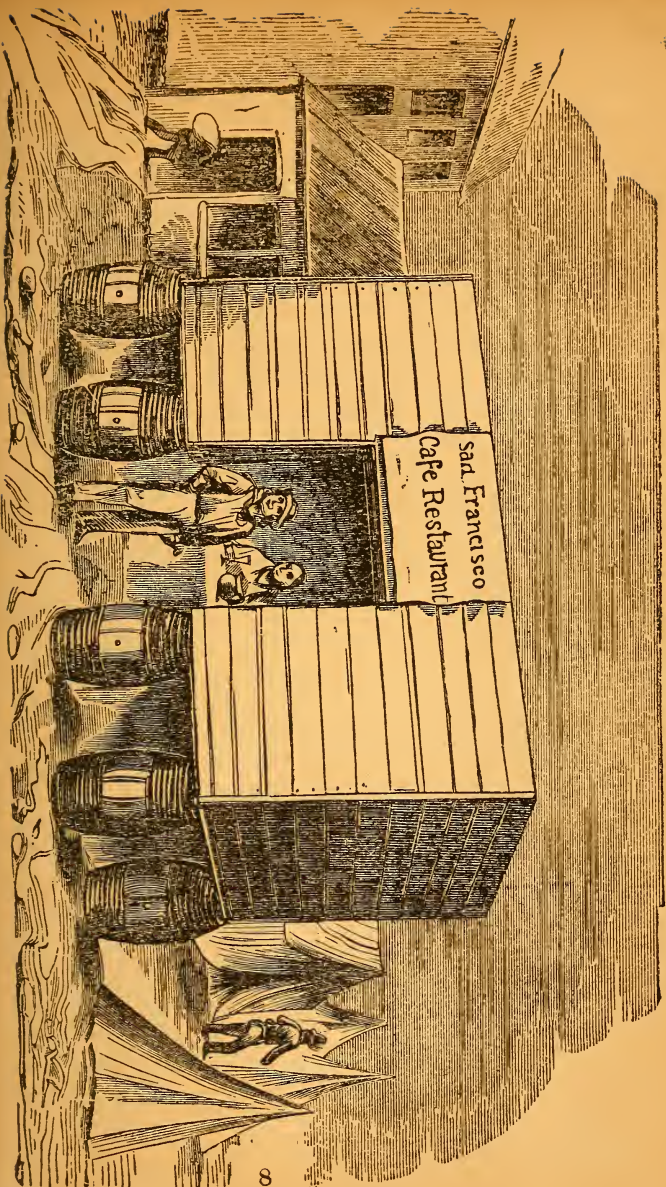 San Francisco
Cafe Restaurant
8